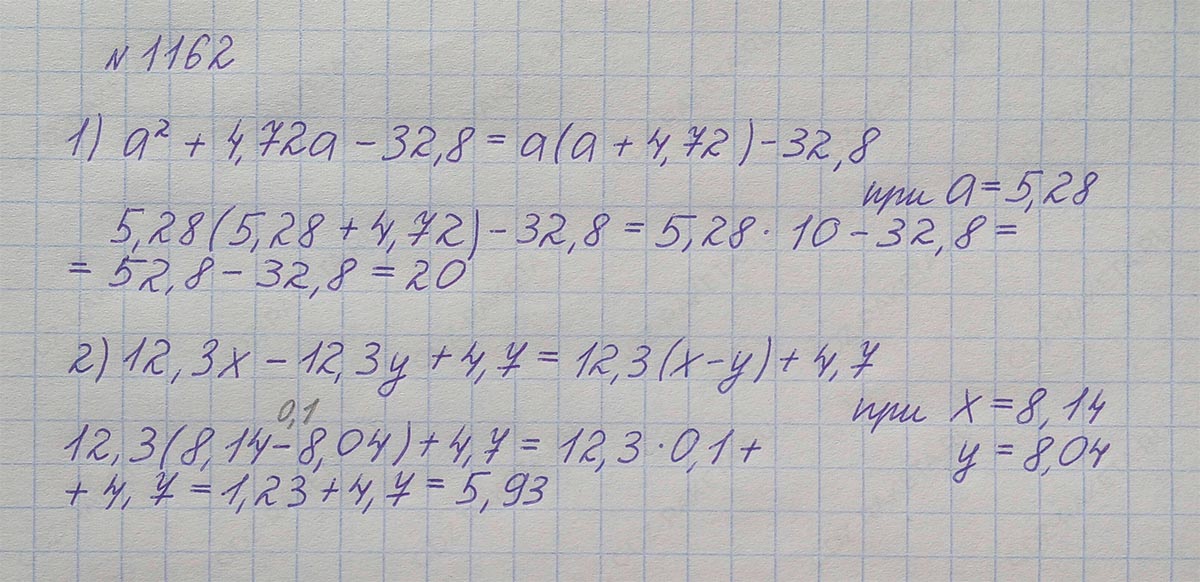 № 1162
1) a² + 4,72a - 32,8 = a(a + 4,72) - 32,8
при a = 5,28
5,28(5,28 + 4,72) - 32,8 = 5,28 · 10 - 32,8 =
= 52,8 - 32,8 = 20
2) 12,3x - 12,3y + 4,7 = 12,3(x - y) + 4,7
при x = 8,14
0,1
12,3(8,14 - 8,04) + 4,7 = 12,3 · 0,1 +
y = 8,04
+ 4,7 = 1,23 + 4,7 = 5,93